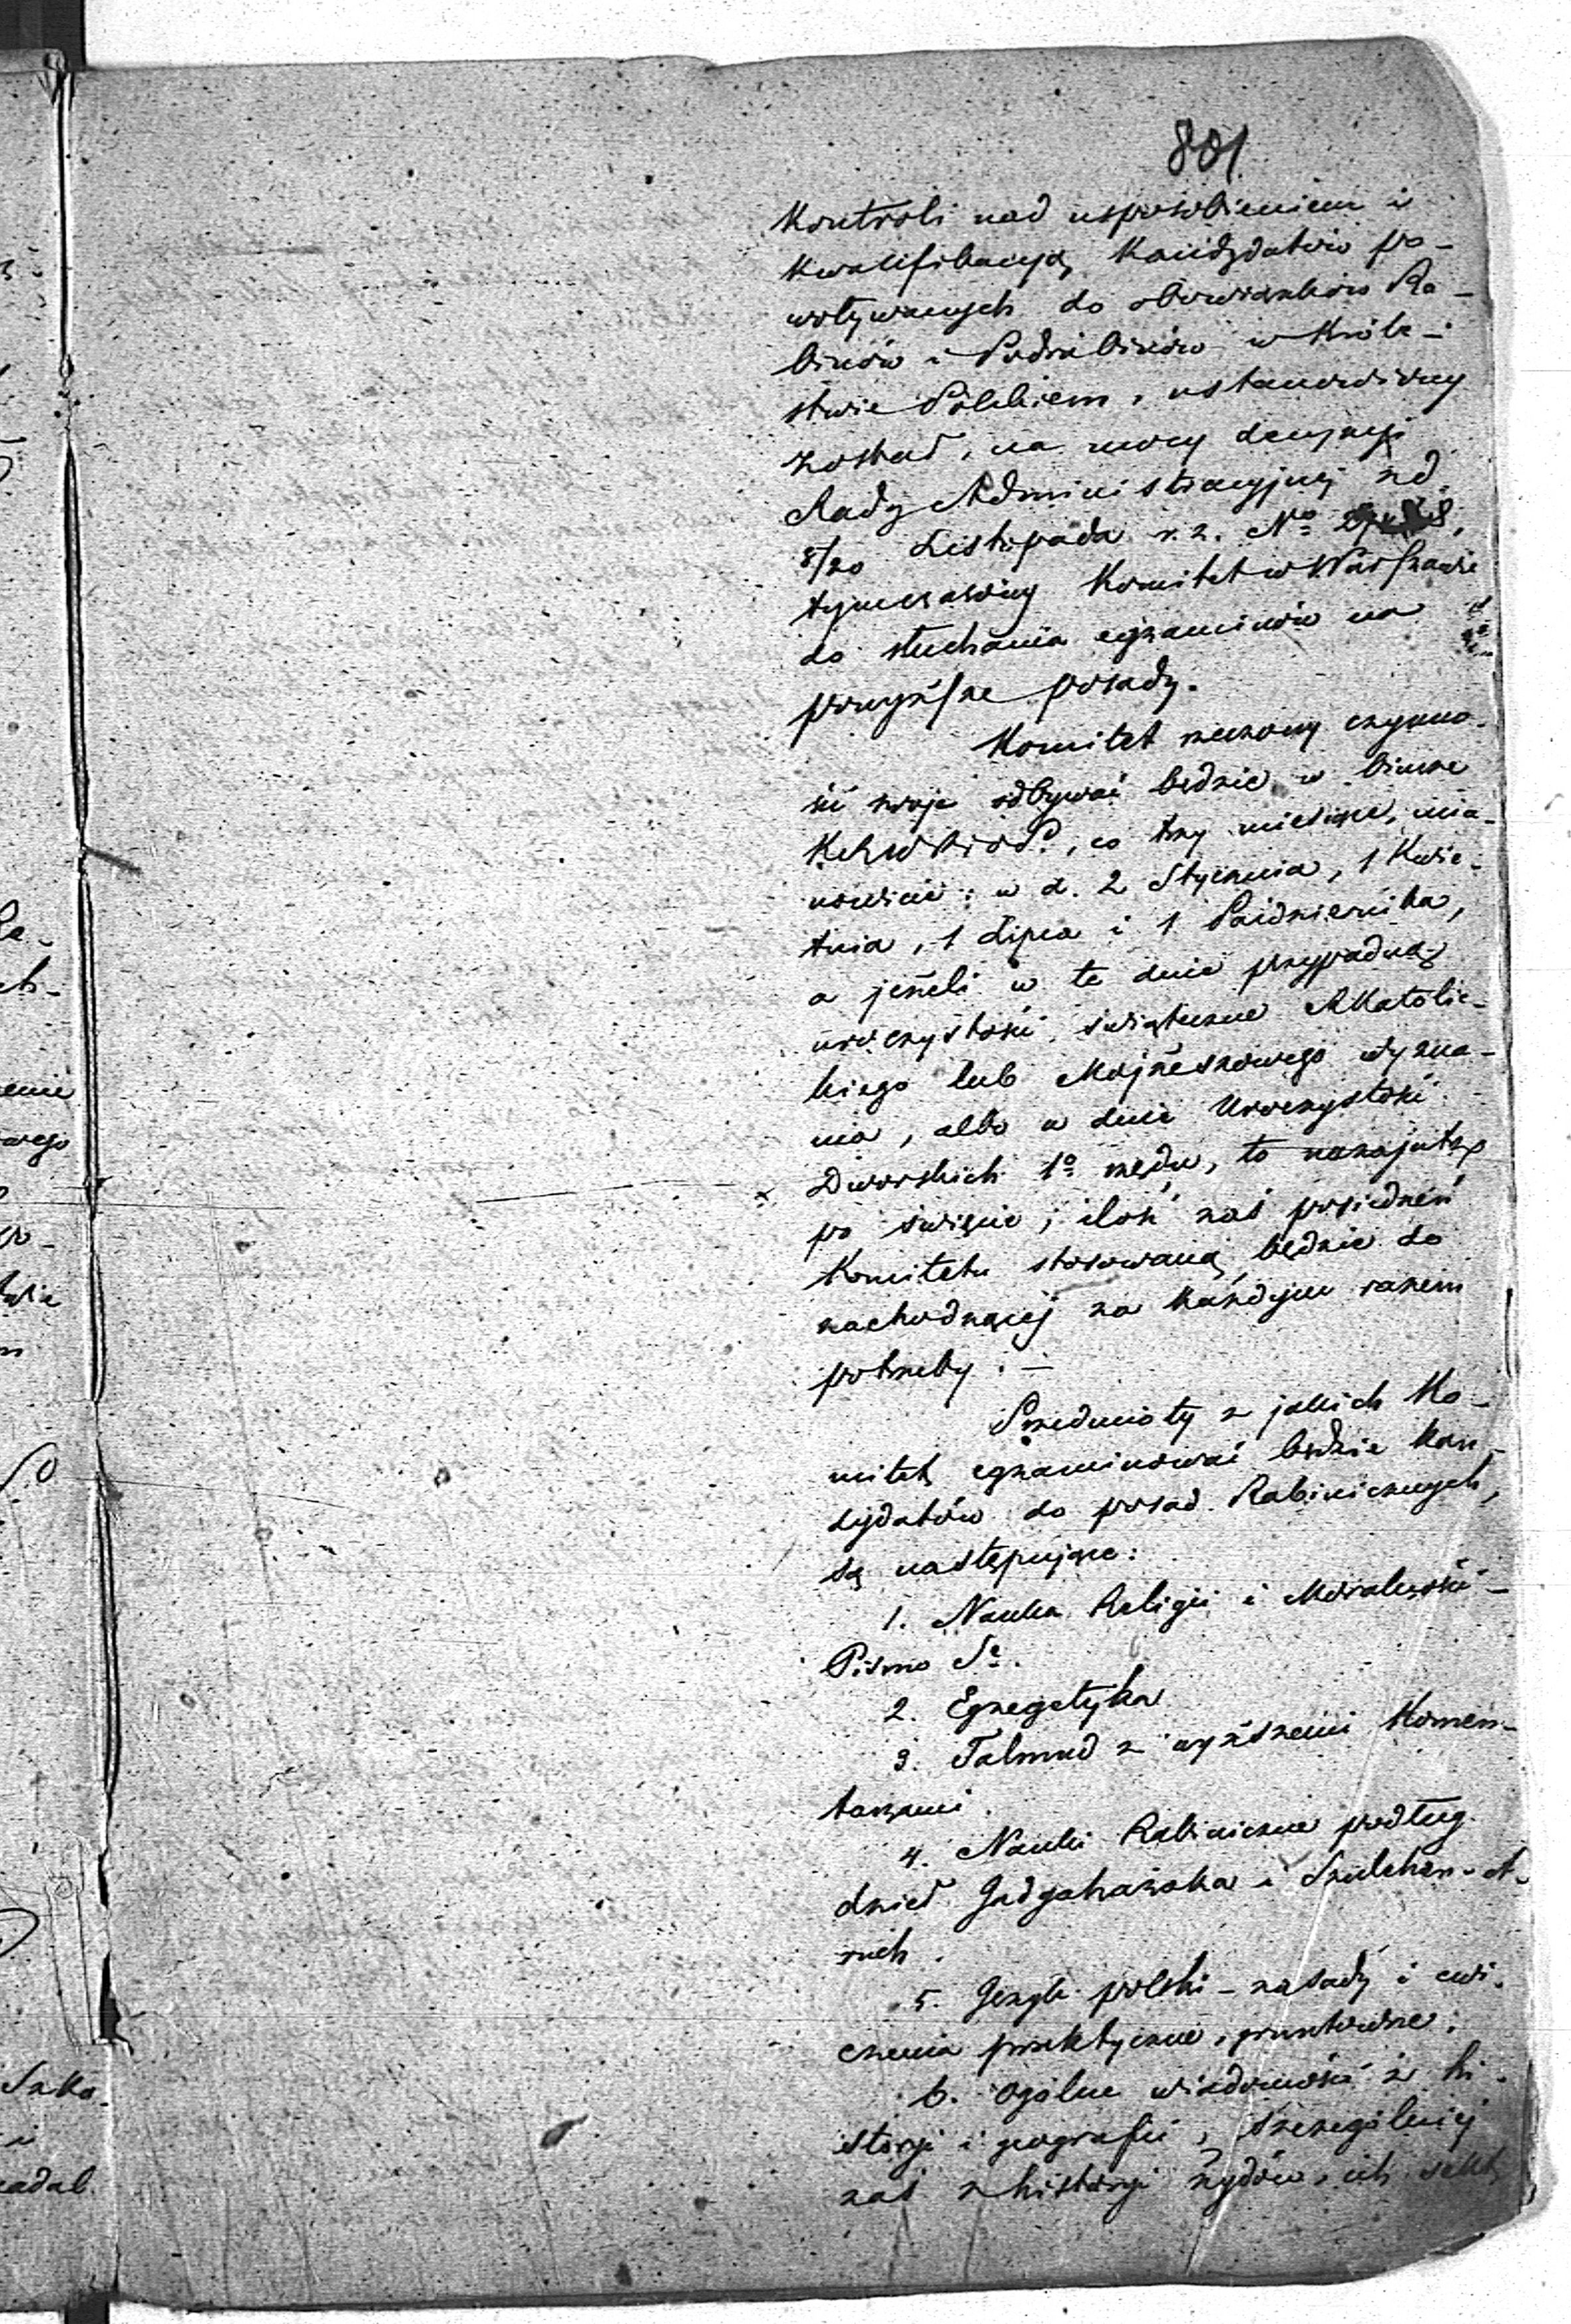 801.
Kontroli nad usposobieniem i
kwalifikacyą Kandydatów po-
woływanych do obowiązków Ra-
binów i Podrabinów w Króle-
stwie Polskiem, ustanowiony
został, na mocy decyzyi
Rady Administracyjnej z d.
8/20 Listopada r. z. No
tymczasowy Komitet w Warszawie
do słuchania egzaminów na
powyższe posady.
Komitet rzeczony czynno-
ści swoje odbywać będzie w biurze
co trzy miesiące, mia-
nowicie: w d. 2 Stycznia, 1 Kwie-
tnia, 1 Lipca i 1 Października,
a jeżeli w te dnie przypadną
uroczystości świąteczne Katolic-
kiego lub Mojżeszowego wyzna-
nia, albo w dnie Uroczystości
Dworskich 1o rzędu, to nazajutrz
po święcie; ilość zaś posiedzeń
Komitetu stosowaną będzie do
zachodzącej za każdym razem
potrzeby. —
Przedmioty z jakich Ko-
mitet egzaminować będzie kan-
dydatów do posad Rabinicznych,
są następujące:
1. Nauka Religii i Moralności -
Pismo Se.
2. Egzegetyka
3. Talmud z wyższemi Komen-
tarzami.
4. Nauki Rabiniczne podług
dzieł Jadgahazaka i Szulchan-A-
ruch.
5. Język polski - zasady i ćwi-
czenia praktyczne, gruntowne.
6. Ogólne wiadomości z hi-
storyi i geografii, szczególniej
zaś z historyi żydów, ich sekt